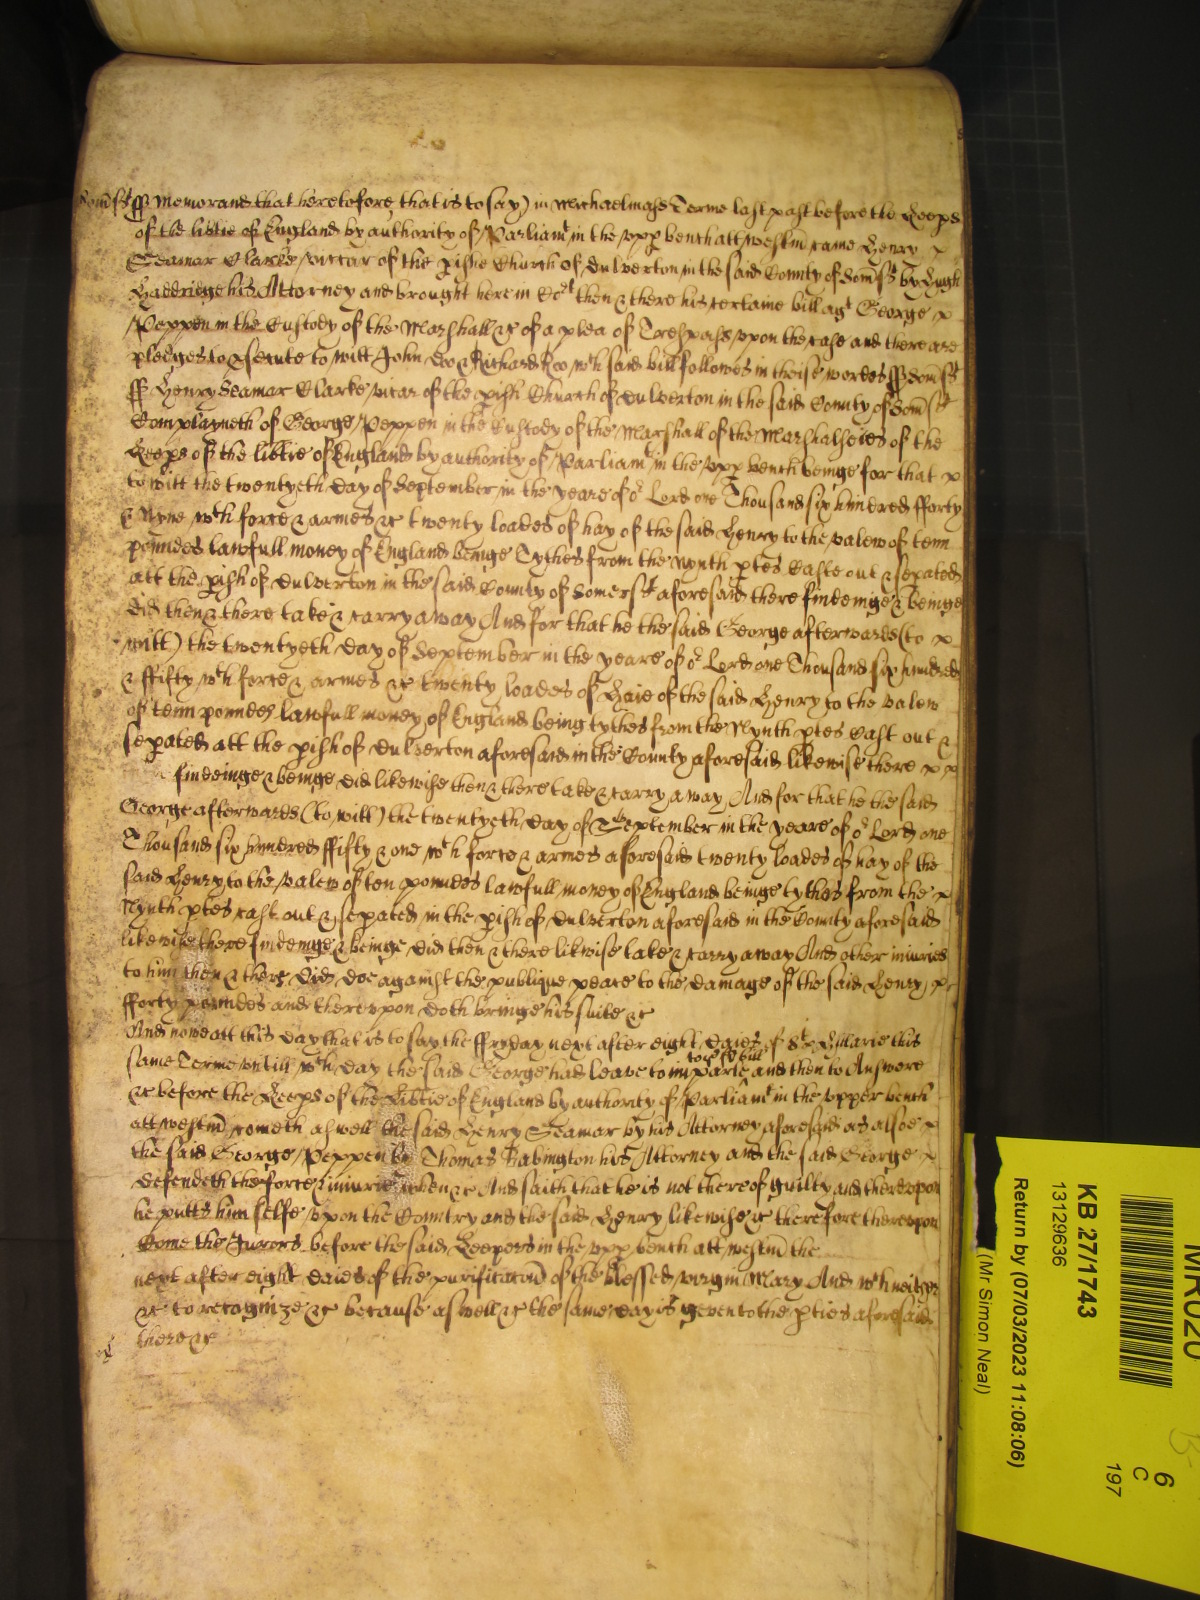 Som̄st ss Memorand that heretofore that is to say) in Michaelmass Terme last past before the Keeps
of the libtie of England by authority of Parliamt in the upp bench att westm̄ came Henry
Seamar Clarke viccar of the pishe Church of Dulverton in the said County of Som̄st by Hugh
his Attorney and brought here in Cort then & there his certaine bill agt George
Peppen in the Custody of the Marshall &c of a plea of Trespass upon the case and there are
pledges to psecute to witt John Doo & Richard Roo wch said bill followes in theise wordes ss Som̄st
ss Henry Seamar Clarke vicar of the pish Church of Dulverton in the said County of Som̄st
Complayneth of George Peppen in the Custody of the Marshall of the Marshalseies of the
Keeps of the libtie of England by authority of Parliamt in the upp bench beinge for that
to witt the twentyeth day of September in the yeare of or Lord one Thousand six hundred fforty
& Nyne wth force & armes &c twenty loades of hay of the said Henry to the valew of tenn
poundes lawfull money of England beinge Tythes from the Nynth ptes Caste out & sepated
att the pish of Dulverton in the said County of Somerst aforesaid there findeinge & beinge
did then & there take & carry away And for that he the said George afterwards (to
witt) the twentyeth day of September in the yeare of or Lord one Thousand six hundred
& ffifty wth force & armes &c twenty loades of Haie of the said Henry to the valew
of tenn poundes lawfull money of England being tythes from the Nynth ptes Cast out &
sepated att the pish of Dulverton aforesaid in the County aforesaid likewise there
findeinge & beinge did likewise then & there take & carry away And for that he the said
George afterwards (to witt) the twentyeth day of September in the yeare of or Lord one
Thousand six hundred ffifty & one wth force & armes aforesaid twenty loades of hay of the
said Henry to the valew of ten poundes lawfull money of England beinge tythes from the
Nynth ptes cast out & sepated in the pish of Dulverton aforesaid in the County aforesaid
likewise there findeinge & beinge did then & there likwise take & carry away And other iniuries
to him then & there did doe against the publique peace to the damage of the said Henry
fforty poundes and thereupon doth bringe his suite &c
And nowe att this day that is to say the ffryday next after eight daies of St Hillarie this
same Terme untill wch day the said George had leave to imparle to ye sd bill and then to Answere
&c before the Keeps of the Libtie of England by authority of Parliamt in the upper bench
att westm̄ cometh aswell the said Henry Seamar by his Attorney aforesaid as alsoe
the said George Peppen by Thomas Babington his Attorney and the said George
defendeth the force & iniurie when &c And saith that he is not thereof guilty and thereupon
he putts him selfe upon the Country and the said Henry likewise &c therefore thereupon
Come the Jurors before the said Keepers in the upp bench att westm̄ the
next after eight daies of the purificac̄on of the blessed virgin Mary And wch neither
&c to recognize &c because aswell &c the same day is geven to the pties aforesaid
there &c
MR020
KB 27/1743
13129636
Return by (07/03/2023 11:08:06)
(Mr Simon Neal)
6
C
197